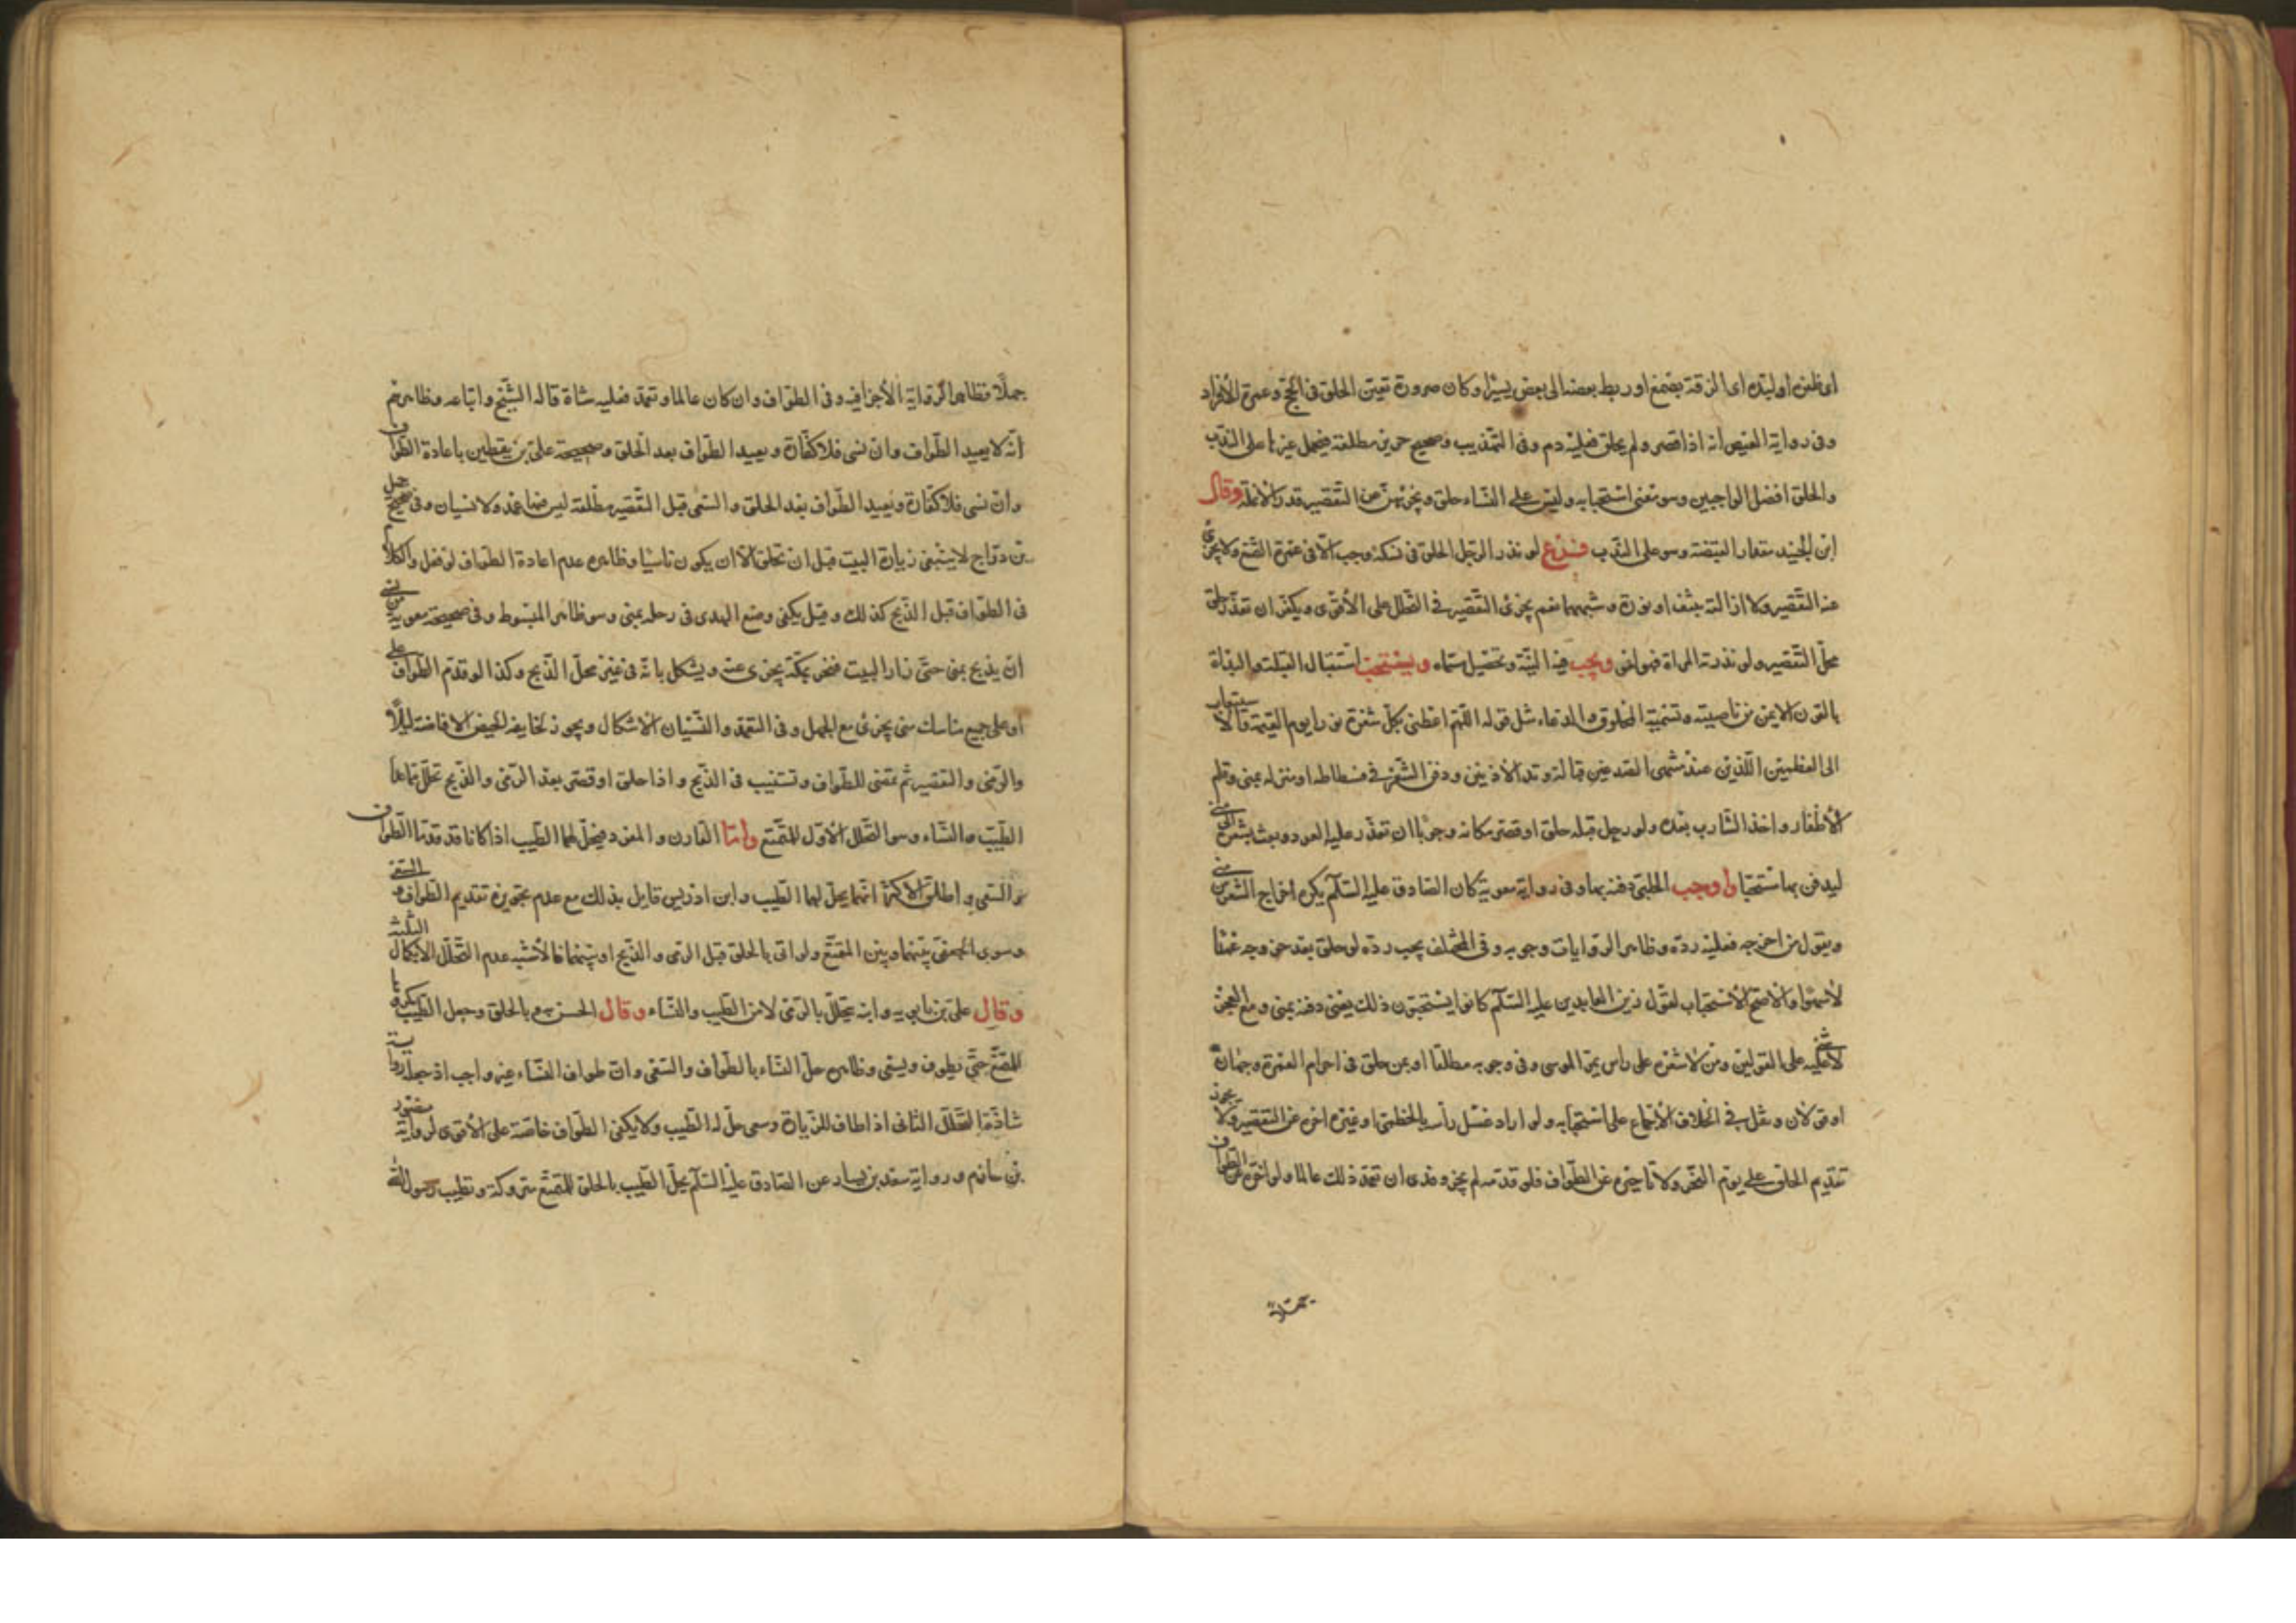 اى ظفره او لبّده اى الزقه بصمغ او ربط بعضه الى بعض يسيرا وكان صرورة تعيّن الحلق فى الحجّ وعمرة الافراد
وفى رواية العيص انه اذا قصر ولم يحلق فعليه دم وفى التهذيب وصحيح حريز مطلقة فيحمل غيرها على الندب
والحلق افضل الواجبين وهو معنى استحبابه وليس على النساء حلق ويجزيهنّ من التقصير قدر الانملة وقال
ابن الجنيد مقدار القبضة وهو على الندب فرع لو نذر الرجل الحلق فى نسكه وجب الّا فى عمرة التمتع ولا يجزئ
عنه التقصير ولا ازالته بنتف او نورة وشبههما نعم يجزئ التقصير فى التحلل على الأقوى ويكفّر ان تعذّر حلق
محلّ التقصير ولو نذرته المراة فهو لغو ويجب فيه النيّة وتحصيل مسمّاه ويستحبّ استقبال القبلة والبداة
بالقرن الايمن من ناصيته وتسمية المحلوق والدعاء مثل قوله اللّهم اعطنى بكلّ شعرة نورا يوم القيمة والاستيعاب
الى العظمين اللّذين عند منتهى الصدغين قبالة وتد الأذنين ودفن الشعر فى فسطاطه او منزله بمنى وقلم
الأظفار واخذ الشارب بعده ولو رحل قبله حلق او قصر مكانه وجوبا ان تعذّر عليه العود وبعث بشعره الى منى
ليدفن بها استحبابا واوجب الحلبى دفنه بها وفى رواية معوية كان الصادق عليه السّلام يكره اخراج الشعر من منى
ويقول من اخرجه فعليه ردّه وظاهر الروايات وجوبه وفى المختلف يجب ردّه لو حلق بعد خروجه عمدا
لا سهوا والاصح الاستحباب لقول زين العابدين عليه السّلام كانوا يستحبّون ذلك يعنى دفنه بمنى ومع العجز
لا شئ عليه على القولين ومن لا شعر على راسه يمرّ الموسى وفى وجوبه مطلقا او بمن حلق فى احرام العمرة وجهان
او قولان ونقل فى الخلاف الاجماع على استحبابه ولو اراد غسل راسه بالخطمى او غيره اخّره عن التقصير ولا يجوز
تقديم الحلق على يوم النحر ولا تاخيره عن الطّواف فلو قدّمه لم يجز وفدى ان تعمّد ذلك عالما ولو اخّره عن الطّواف
جهلا
جهلا فظاهر الرّواية الأجزا فيه وفى الطواف وان كان عالما وتعمّد فعليه شاة قاله الشيخ واتباعه وظاهرهم
انّه لا يعيد الطّواف وان نسى فلا كفّارة ويعيد الطواف بعد الحلق وصحيحة علىّ بن يقطين باعادة الطواف
وان نسى فلا كفّارة ويعيد الطّواف بعد الحلق والسّعى قبل التقصير مطلقة ليس فيها عمد ولا نسيان وفى صحيح جميل
بن درّاج لا ينبغى زيارة البيت قبل ان تحلق الّا ان يكون ناسيا وظاهره عدم اعادة الطّواف لو فعل والكلام
فى الطّواف قبل الذّبح كذلك وقيل يكفى وضع الهدى فى رحله بمنى وهو ظاهر المبسوط وفى صحيحة معوية من نسى
ان يذبح بمنى حتّى زار البيت فنحر بمكّة يجزى عنه ويشكل بانّه فى غير محلّ الذّبح وكذا لو قدّم الطّواف على
او على جميع مناسك منى يجزئ مع الجهل وفى التعمّد والنّسيان الاشكال ويجوز لخايفة الحيض الافاضة ليلا
والرّمى والتقصير ثم تمضى للطّواف وتستنيب فى الذّبح واذا حلق او قصر بعد الرّمى والذّبح تحلّل ممّا عدا
الطّيب والنّساء وهو التحلل الاوّل للمتمتع وامّا القارن والمفرد فيحلّ لهما الطّيب اذا كانا قد قدّما الطّواف
والسّعى واطلق الأكثر انّهما يحلّ لهما الطّيب وابن ادريس قايل بذلك مع عدم تجويزه تقديم الطّواف والسعى
وسوى الجعفى بينهما وبين المتمتّع ولو اتى بالحلق قبل الرّمى والذّبح او بينهما فالأشبه عدم التّحلّل الا بكمال الثلثة
وقال علىّ بن بابويه وابنه يتحلّل بالرّمى لا من الطّيب والنّساء وقال الحسن هو بالحلق وجعل الطّيب مكروها
للمتمتّع حتّى يطوف ويسعى وظاهره حلّ النساء بالطّواف والسّعى وانّ طواف النّساء غير واجب اذ جعله رواية
شاذّة التحلّل الثانى اذا طاف للزّيارة وسعى حلّ له الطّيب ولا يكفى الطّواف خاصّة على الأقوى لرواية منصور
بن حازم ورواية سعيد بن يسار عن الصّادق عليه السّلام يحلّ الطّيب بالحلق للمتمتّع متروكة وتطيب رسول الله